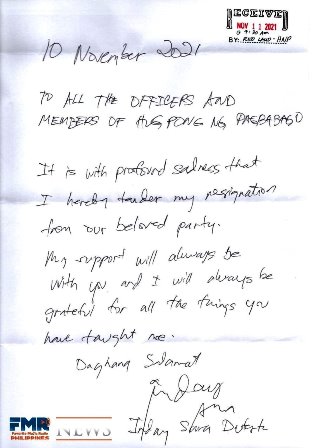 RECEIVED
NOV 11 2021
@ 9:30 AM
BY: RED LAND - HNP
10 November 2021
TO ALL THE OFFICERS AND
MEMBERS OF HUGPONG NG PAGBABAGO
It is with profound sadness that
I hereby tender my resignation
from our beloved party.
My support will always be
with you and I will always be
grateful for all the things you
have taught me.
Daghang Salamat
Inday Sara Duterte
FMR
Favorite Music Radio
PHILIPPINES
NEWS